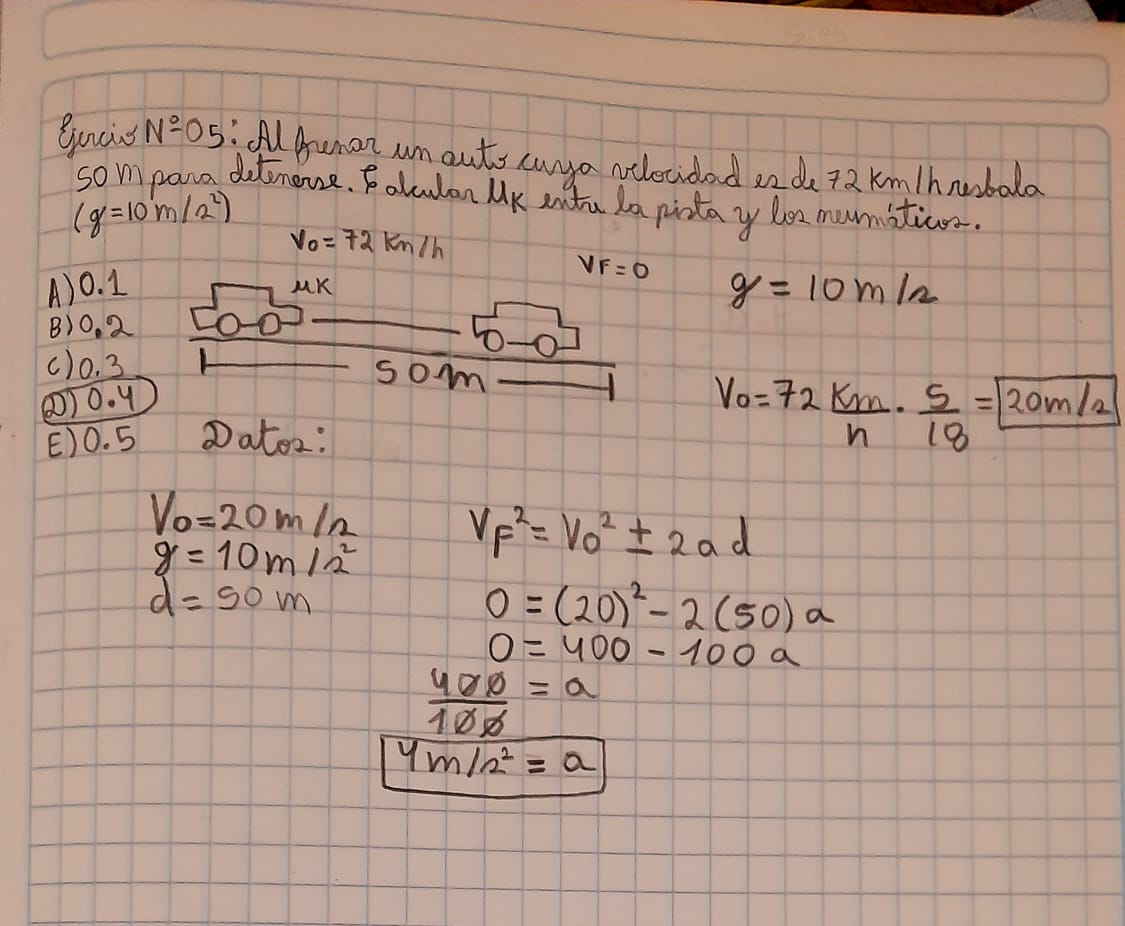 Ejercicio Nº05: Al frenar un auto cuya velocidad es de 72 km/h resbala
50 m para detenerse. Calcular μK entre la pista y los neumáticos.
(g=10 m/s²)
Vo=72 Km/h
VF=0
g = 10 m/s
A) 0.1
μK
B) 0,2
C) 0.3
50m
D) 0.4
E) 0.5
Vo=72 Km/h . 5/18 = 20m/s
Datos:
Vo=20m/s
g = 10m/s²
d = 50 m
VF² = Vo² ± 2ad
0 = (20)² - 2(50)a
0 = 400 - 100a
400/100 = a
4m/s² = a